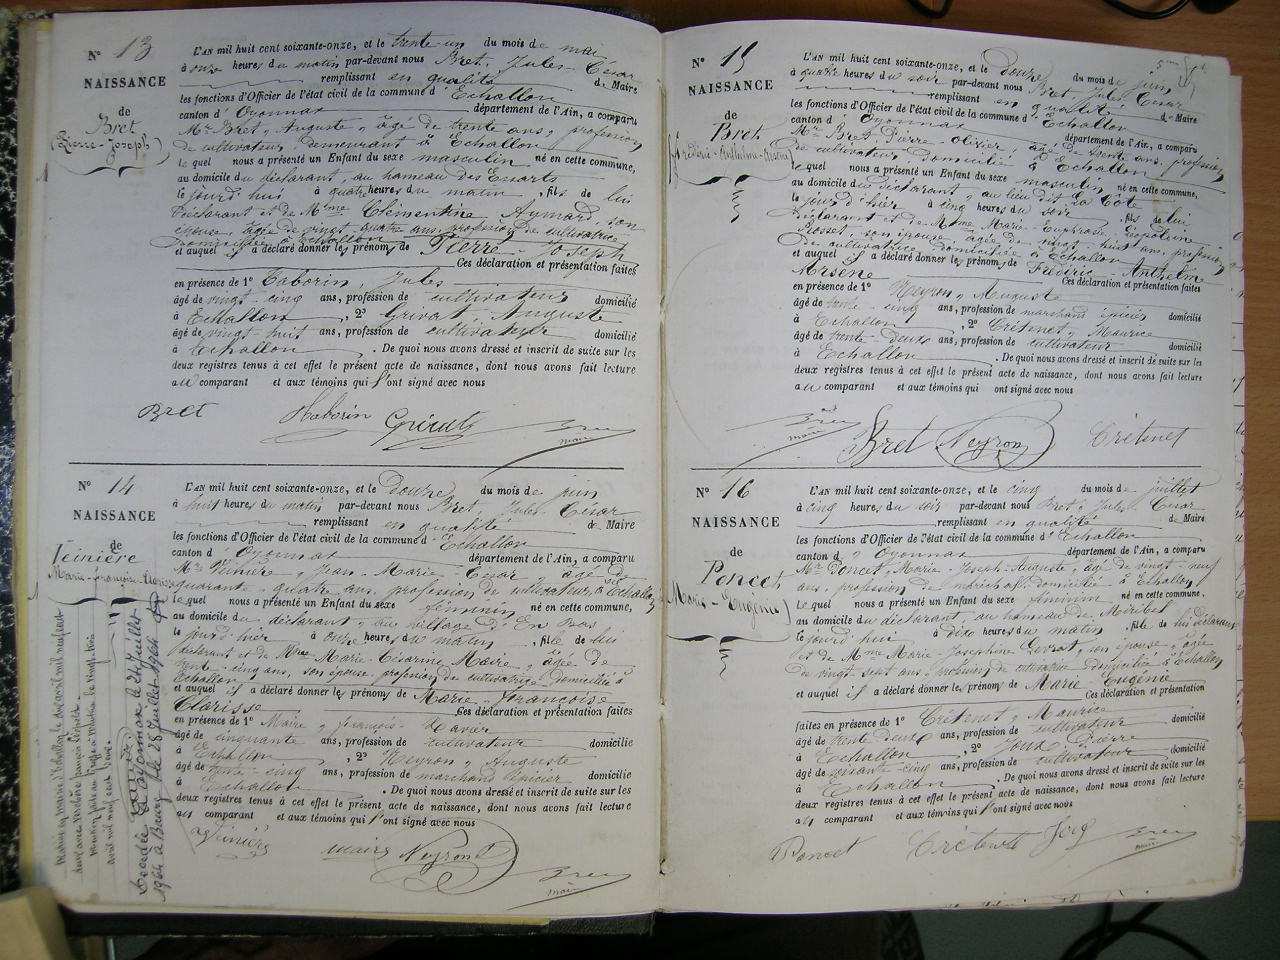 N° 13
NAISSANCE
de
Bret
(Pierre-Joseph)
L'AN mil huit cent soixante-onze, et le trente-un du mois de mai
à onze heures du matin par-devant nous Bret, Jules-César
remplissant en qualité de Maire
les fonctions d'Officier de l'état civil de la commune d'Echallon
canton d'Oyonnax département de l'Ain, a comparu
Mr Bret, Auguste, âgé de trente ans, profession
de cultivateur, demeurant à Echallon
lequel nous a présenté un Enfant du sexe masculin né en cette commune,
au domicile du déclarant, au hameau des Essarts
le jourd'hui à quatre heures du matin, fils de lui
déclarant et de Mme Clémentine Aymard, son
épouse, âgée de vingt-quatre ans, profession de cultivatrice
domiciliée à Echallon
et auquel il a déclaré donner les prénoms de Pierre-Joseph
Ces déclaration et présentation faites
en présence de 1° Taborin, Jules
âgé de vingt-cinq ans, profession de cultivateur domicilié
à Echallon, 2° Auguste
âgé de vingt-huit ans, profession de cultivateur domicilié
à Echallon. De quoi nous avons dressé et inscrit de suite sur les
deux registres tenus à cet effet le présent acte de naissance, dont nous avons fait lecture
au comparant et aux témoins qui l'ont signé avec nous
Bret Taborin Bret
maire
N° 14
NAISSANCE
de
Teinière
Marie-Françoise-Clarisse
L'AN mil huit cent soixante-onze, et le douze du mois de juin
à huit heures du matin, par-devant nous Bret, Jules César
remplissant en qualité de Maire
les fonctions d'Officier de l'état civil de la commune d'Echallon
canton d'Oyonnax département de l'Ain, a comparu
Mr Teinière, Jean-Marie-César, âgé de
quarante-quatre ans, profession de cultivateur, à Echallon
lequel nous a présenté un Enfant du sexe féminin né en cette commune,
au domicile du déclarant, au village d'En Bas
le jour d'hier à onze heures du matin, fille de lui
déclarant et de Mme Marie-Césarine Maire, âgée de
trente-cinq ans, son épouse, profession de cultivatrice domiciliée à
Echallon
et auquel il a déclaré donner les prénoms de Marie-Françoise
Clarisse Ces déclaration et présentation faites
en présence de 1° Maire, François-Xavier
âgé de cinquante ans, profession de cultivateur domicilié
à Echallon, 2° Neyron, Auguste
âgé de trente-cinq ans, profession de marchand épicier domicilié
à Echallon. De quoi nous avons dressé et inscrit de suite sur les
deux registres tenus à cet effet le présent acte de naissance, dont nous avons fait lecture
au comparant et aux témoins qui l'ont signé avec nous
Teinière maire Neyron Bret
maire
Mariée en mairie d'Echallon le avril mil neuf cent
avril mil neuf cent
Décédée à Oyonnax le Juillet
1964 à Bourg le 28 Juillet 1964
N° 15
NAISSANCE
de
Bret
(Frédéric-Anthelme-Arsène)
L'AN mil huit cent soixante-onze, et le douze du mois de juin
à quatre heures du soir par-devant nous Bret Jules César
remplissant en qualité de Maire
les fonctions d'Officier de l'état civil de la commune d'Echallon
canton d'Oyonnax département de l'Ain, a comparu
Mr Bret Pierre-Olivier, âgé de trente ans, profession
de cultivateur, domicilié à Echallon
lequel nous a présenté un Enfant du sexe masculin, né en cette commune,
au domicile du déclarant, au lieu dit la Côte
le jour d'hier à cinq heures du soir, fils de lui
déclarant et de Mme Marie-Euphrasie
Rosset, son épouse, âgée de vingt-huit ans, profession
de cultivatrice domiciliée à Echallon
et auquel il a déclaré donner les prénoms de Frédéric-Anthelme
Arsène Ces déclaration et présentation faites
en présence de 1° Neyron, Auguste
âgé de trente-cinq ans, profession de marchand épicier domicilié
à Echallon, 2° Crétenet, Maurice
âgé de trente-deux ans, profession de cultivateur domicilié
à Echallon. De quoi nous avons dressé et inscrit de suite sur les
deux registres tenus à cet effet le présent acte de naissance, dont nous avons fait lecture
au comparant et aux témoins qui ont signé avec nous
Bret
maire Bret Neyron Crétenet
N° 16
NAISSANCE
de
Poncet
(Marie-Eugénie)
L'AN mil huit cent soixante-onze, et le cinq du mois de juillet
à cinq heures du soir par-devant nous Bret, Jules-César
remplissant en qualité de Maire
les fonctions d'Officier de l'état civil de la commune d'Echallon
canton d'Oyonnax département de l'Ain, a comparu
Mr Poncet, Marie-Joseph-Auguste, âgé de vingt-neuf
ans, profession de maréchal, domicilié à Echallon
lequel nous a présenté un Enfant du sexe féminin né en cette commune,
au domicile du déclarant, au hameau de Miribel
le jourd'hui à dix heures du matin, fille de lui déclarant
et de Mme Marie-Joséphine son épouse, âgée
de vingt-sept ans, profession de cultivatrice domiciliée à Echallon
et auquel il a déclaré donner les prénoms de Marie-Eugénie
Ces déclaration et présentation
faites en présence de 1° Crétenet, Maurice
âgé de trente-deux ans, profession de cultivateur domicilié
à Echallon, 2° Pierre
âgé de ans, profession de cultivateur domicilié
à Echallon. De quoi nous avons dressé et inscrit de suite sur les
deux registres tenus à cet effet le présent acte de naissance, dont nous avons fait lecture
au comparant et aux témoins qui l'ont signé avec nous
Poncet Crétenet Bret
maire